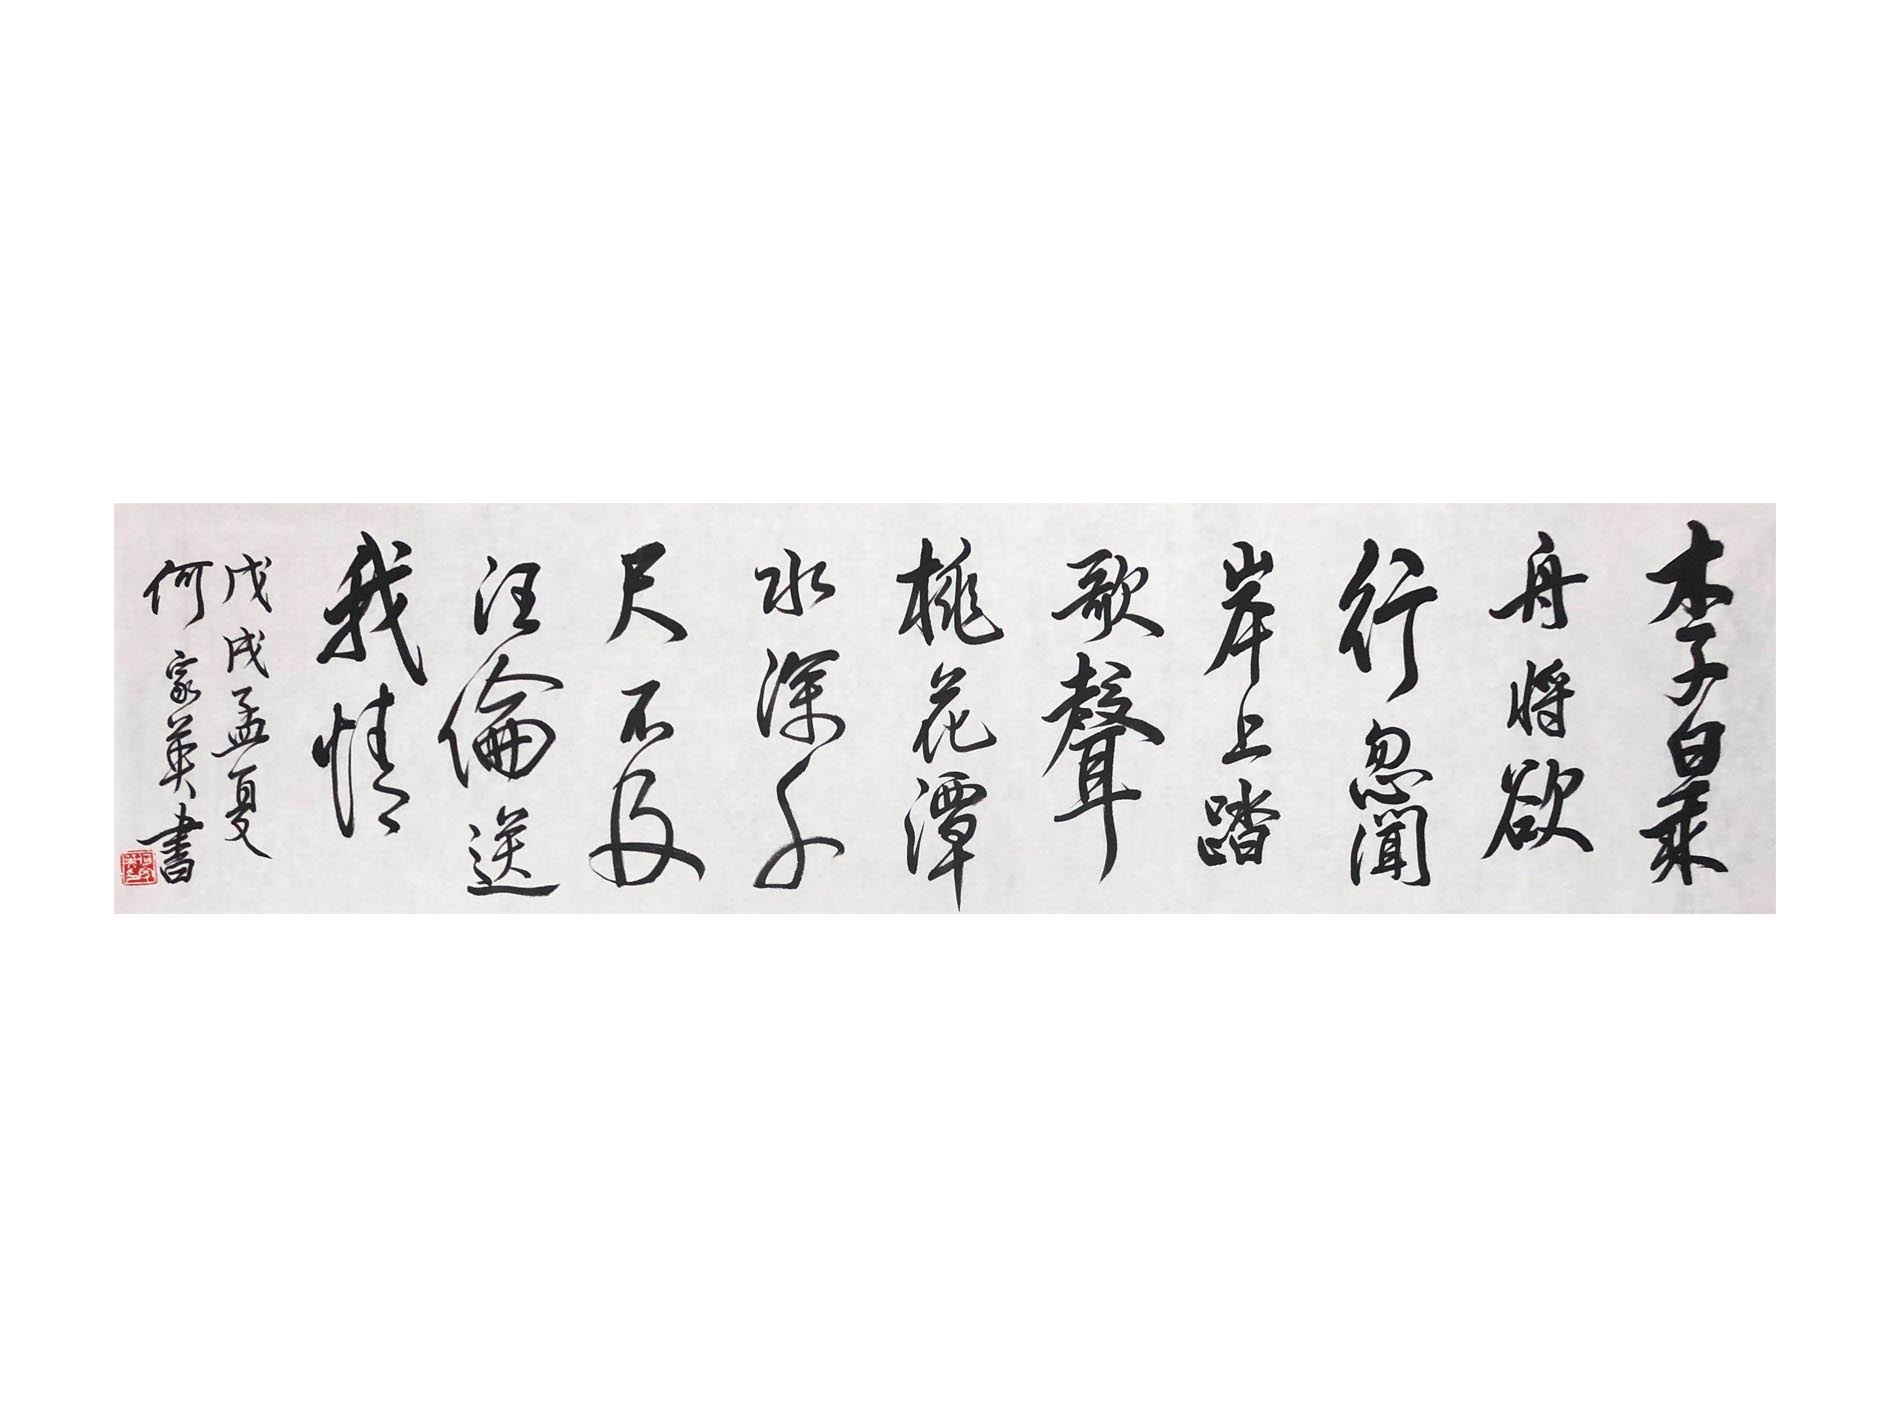 李白乘
舟将欲
行忽聞
岸上踏
歌聲
桃花潭
水深千
尺不及
汪倫送
我情
戊戌孟夏
何家英書